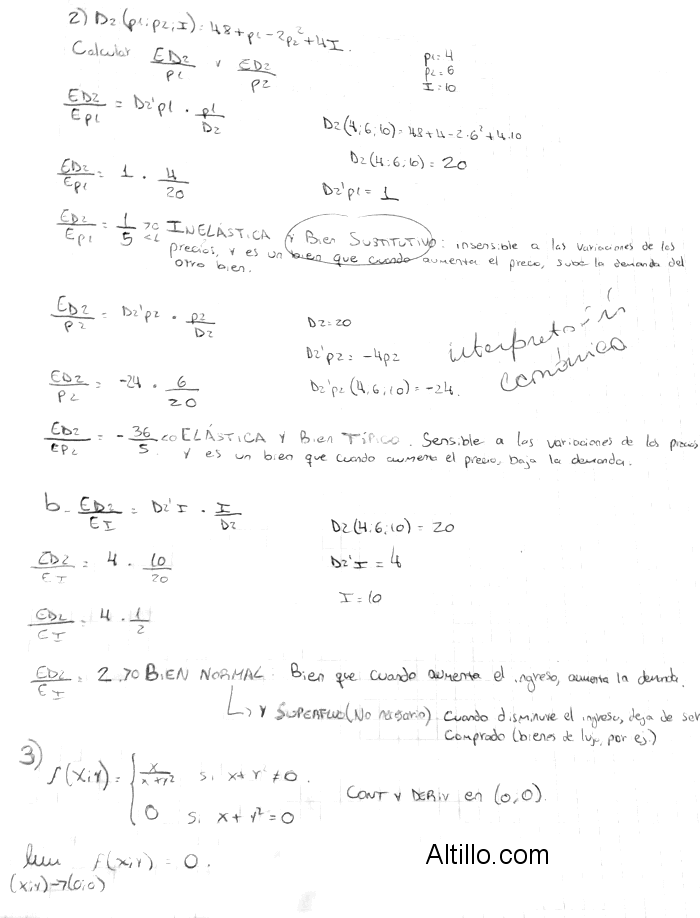 2) D2 (p1;p2;I): 48 + p1 - 2p2² + 4I.
Calcular ED2/p1 y ED2/p2
p1: 4
p2: 6
I: 10
ED2/Ep1 = D2'p1 . p1/D2
D2(4;6;10) = 48+4-2·6²+4.10
D2(4;6;10) = 20
ED2/Ep1 = 1 . 4/20
D2'p1 = 1
ED2/Ep1 = 1/5 >0 <1 INELÁSTICA Y Bien SUSTITUTIVO: insensible a las variaciones de los
precios, y es un bien que cuando aumenta el precio, sube la demanda del
otro bien.
ED2/p2 = D2'p2 . p2/D2
D2=20
D2'p2 = -4p2
interpretación
económica
ED2/p2 = -24 . 6/20
D2'p2 (4,6;10) = -24.
ED2/EP2 = -36/5 <0 ELÁSTICA Y Bien TÍPICO. Sensible a las variaciones de los precios
y es un bien que cuando aumenta el precio, baja la demanda.
b- ED2/EI = D2'I . I/D2
D2(4;6;10) = 20
ED2/EI = 4 . 10/20
D2'I = 4
I = 10
ED2/EI = 4 . 1/2
ED2/EI = 2 >0 BIEN NORMAL. Bien que cuando aumenta el ingreso, aumenta la demanda.
↳ Y SUPERFLUO (No necesario). Cuando disminuye el ingreso, deja de ser
comprado (bienes de lujo, por ej.)
3) f(x;y) = { x/x+y² si x+y² ≠ 0.
0 si x + y² = 0
CONT Y DERIV en (0,0).
lim f(x;y) = 0.
(x;y)→(0;0)
Altillo.com